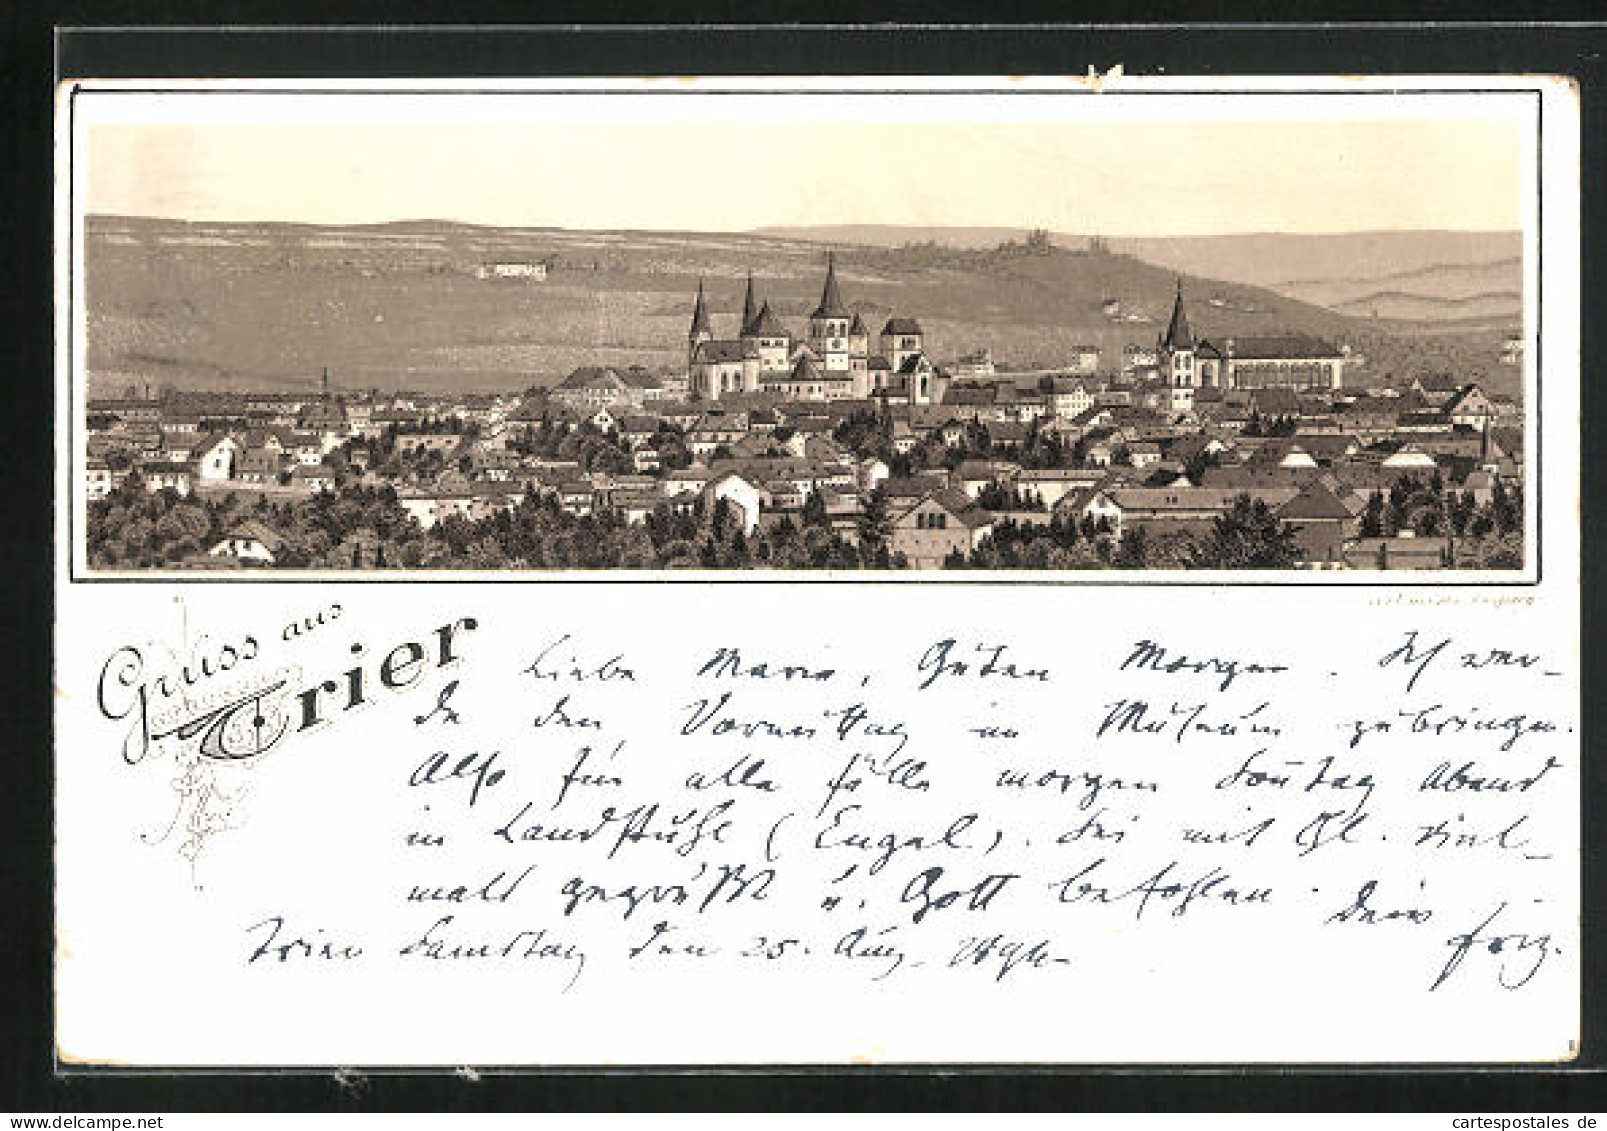 Gruss aus
Trier
Liebe Marie, Guten Morgen. Ich wer-
de den Vormittag im Museum zubringen.
Also für alle fälle morgen Sontag Abend
in Landstuhl (Engel). Sei mit viel-
mals gegrüßt u. Gott befohlen. Dein
Friz.
Trier Samstag den 25. Aug. 1894
cartespostales de